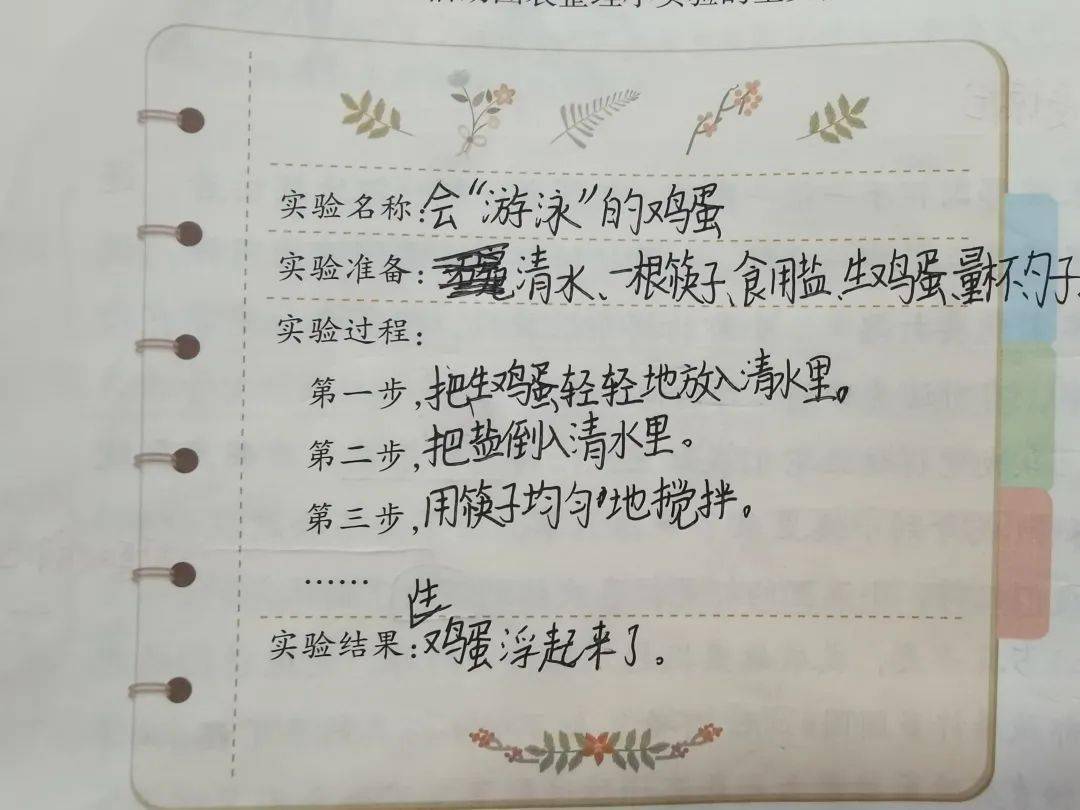 实验名称：会“游泳”的鸡蛋
实验准备：清水、一根筷子、食用盐、生鸡蛋、量杯、勺子、
实验过程：
第一步，把生鸡蛋轻轻地放入清水里。
第二步，把盐倒入清水里。
第三步，用筷子均匀地搅拌。
……
实验结果：生鸡蛋浮起来了。